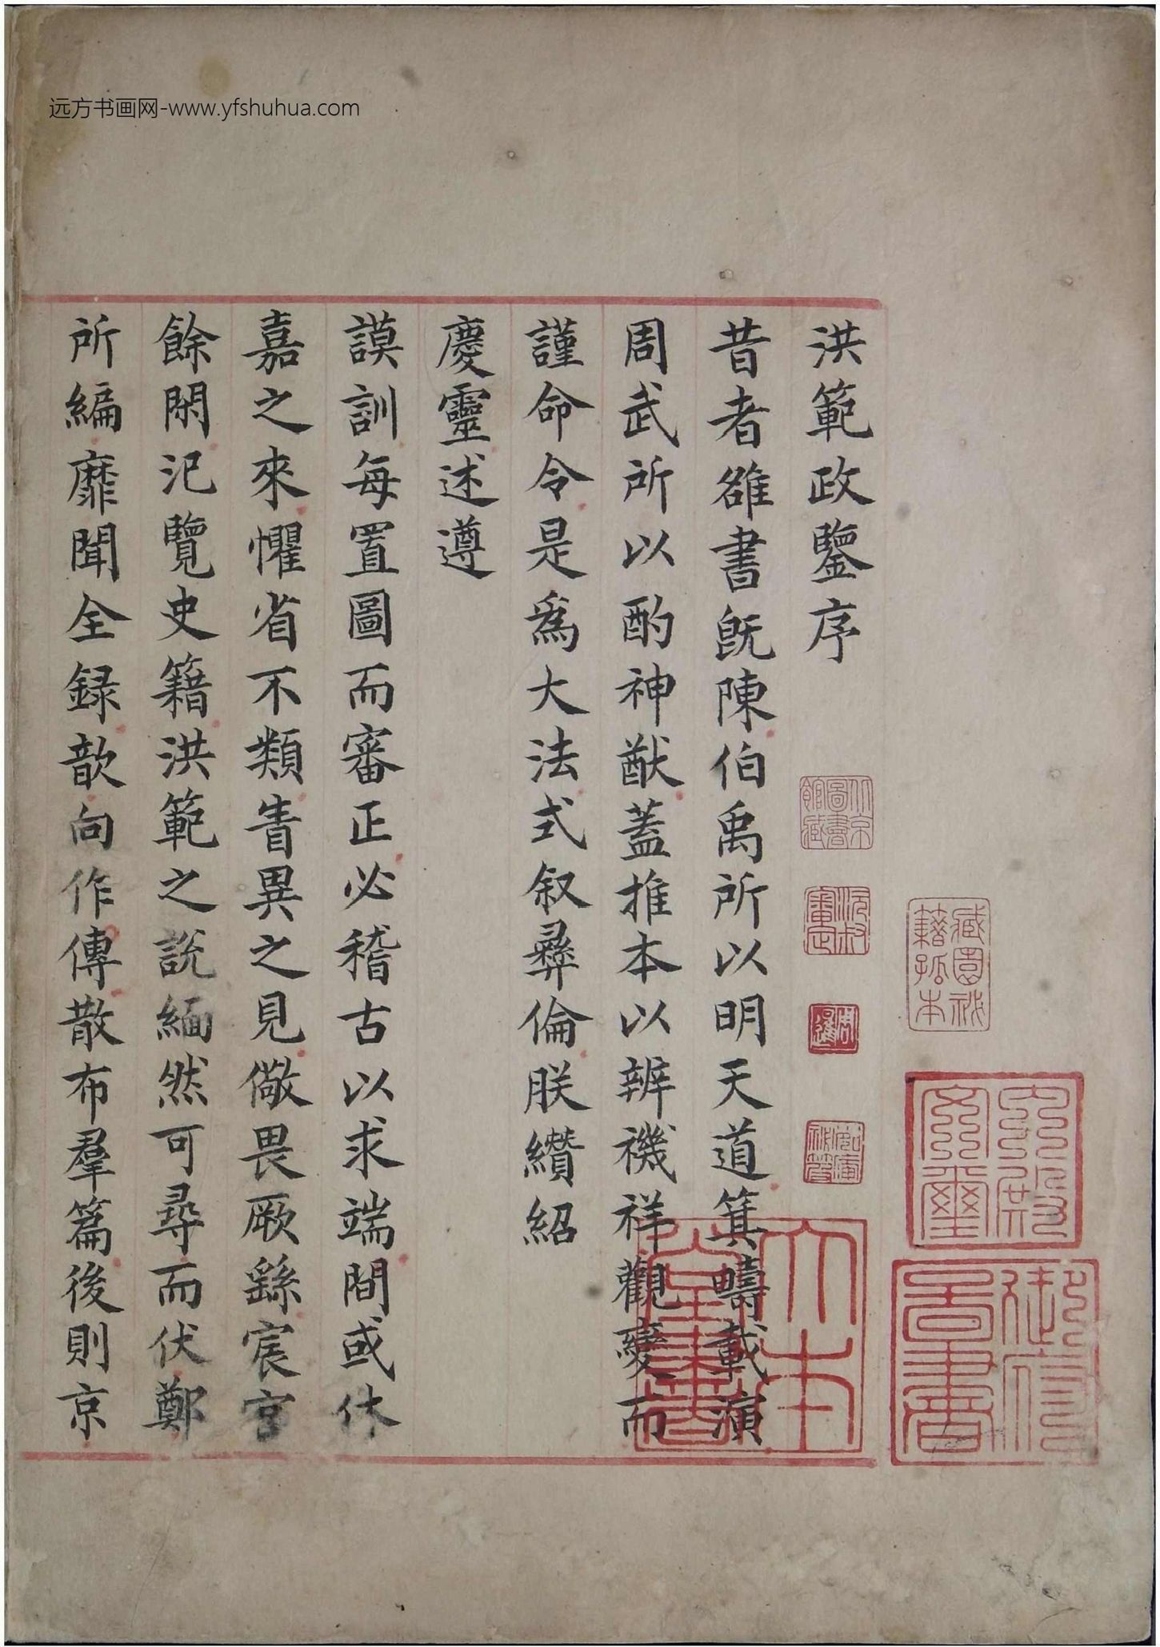 远方书画网-www.yfshuhua.com
洪範政鑒序
昔者雒書旣陳伯禹所以明天道箕疇載演
周武所以酌神猷蓋推本以辨禨祥觀變而
謹命令是爲大法式叙彝倫朕纘紹
慶靈述遵
謨訓每置圖而審正必稽古以求端間或休
嘉之來懼省不類眚異之見儆畏厥繇宸宫
餘閑氾覽史籍洪範之說緬然可尋而伏鄭
所編靡聞全録歆向作傳散布羣篇後則京
北京圖書館藏
沅叔審定
周暹
藏園秘籍孤本
內殿文璽
御府圖書
大本堂書